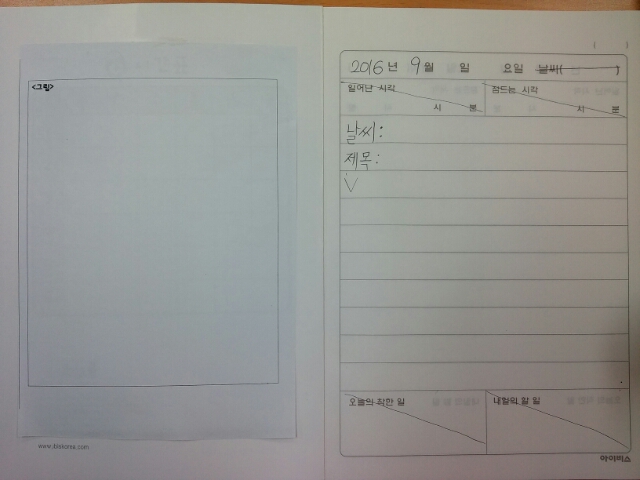 <그림>
www.ibiskorea.com
(          )
2016년 9월 일 요일 날씨( )
일어난 시각
시 분
잠드는 시각
시 분
날씨:
제목:
V
오늘의 착한 일
내일의 할 일
아이비스